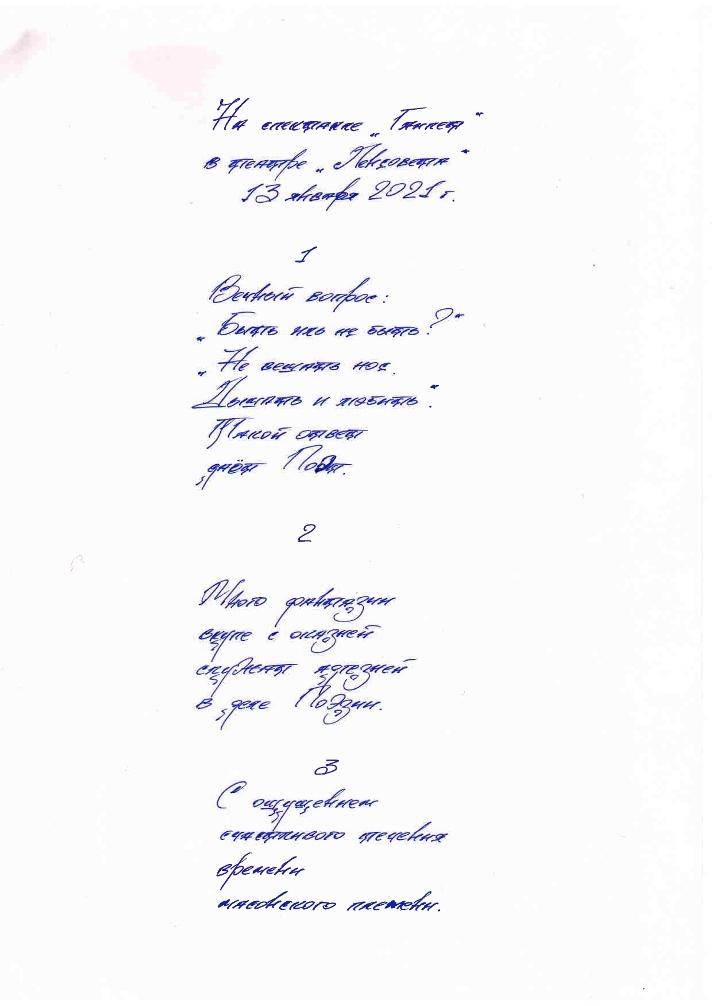 На спектакле „Гамлет"
в театре „Ленсовета"
13 января 2021 г.
1
Вечный вопрос:
„Быть иль не быть?"
„Не вешать нос.
Дышать и любить".
Такой ответ
даёт Поэт.
2
Много фантазии
вкупе с оказией
служат
в деле Поэзии.
3
С ощущением
счастливого течения
времени
масонского племени.